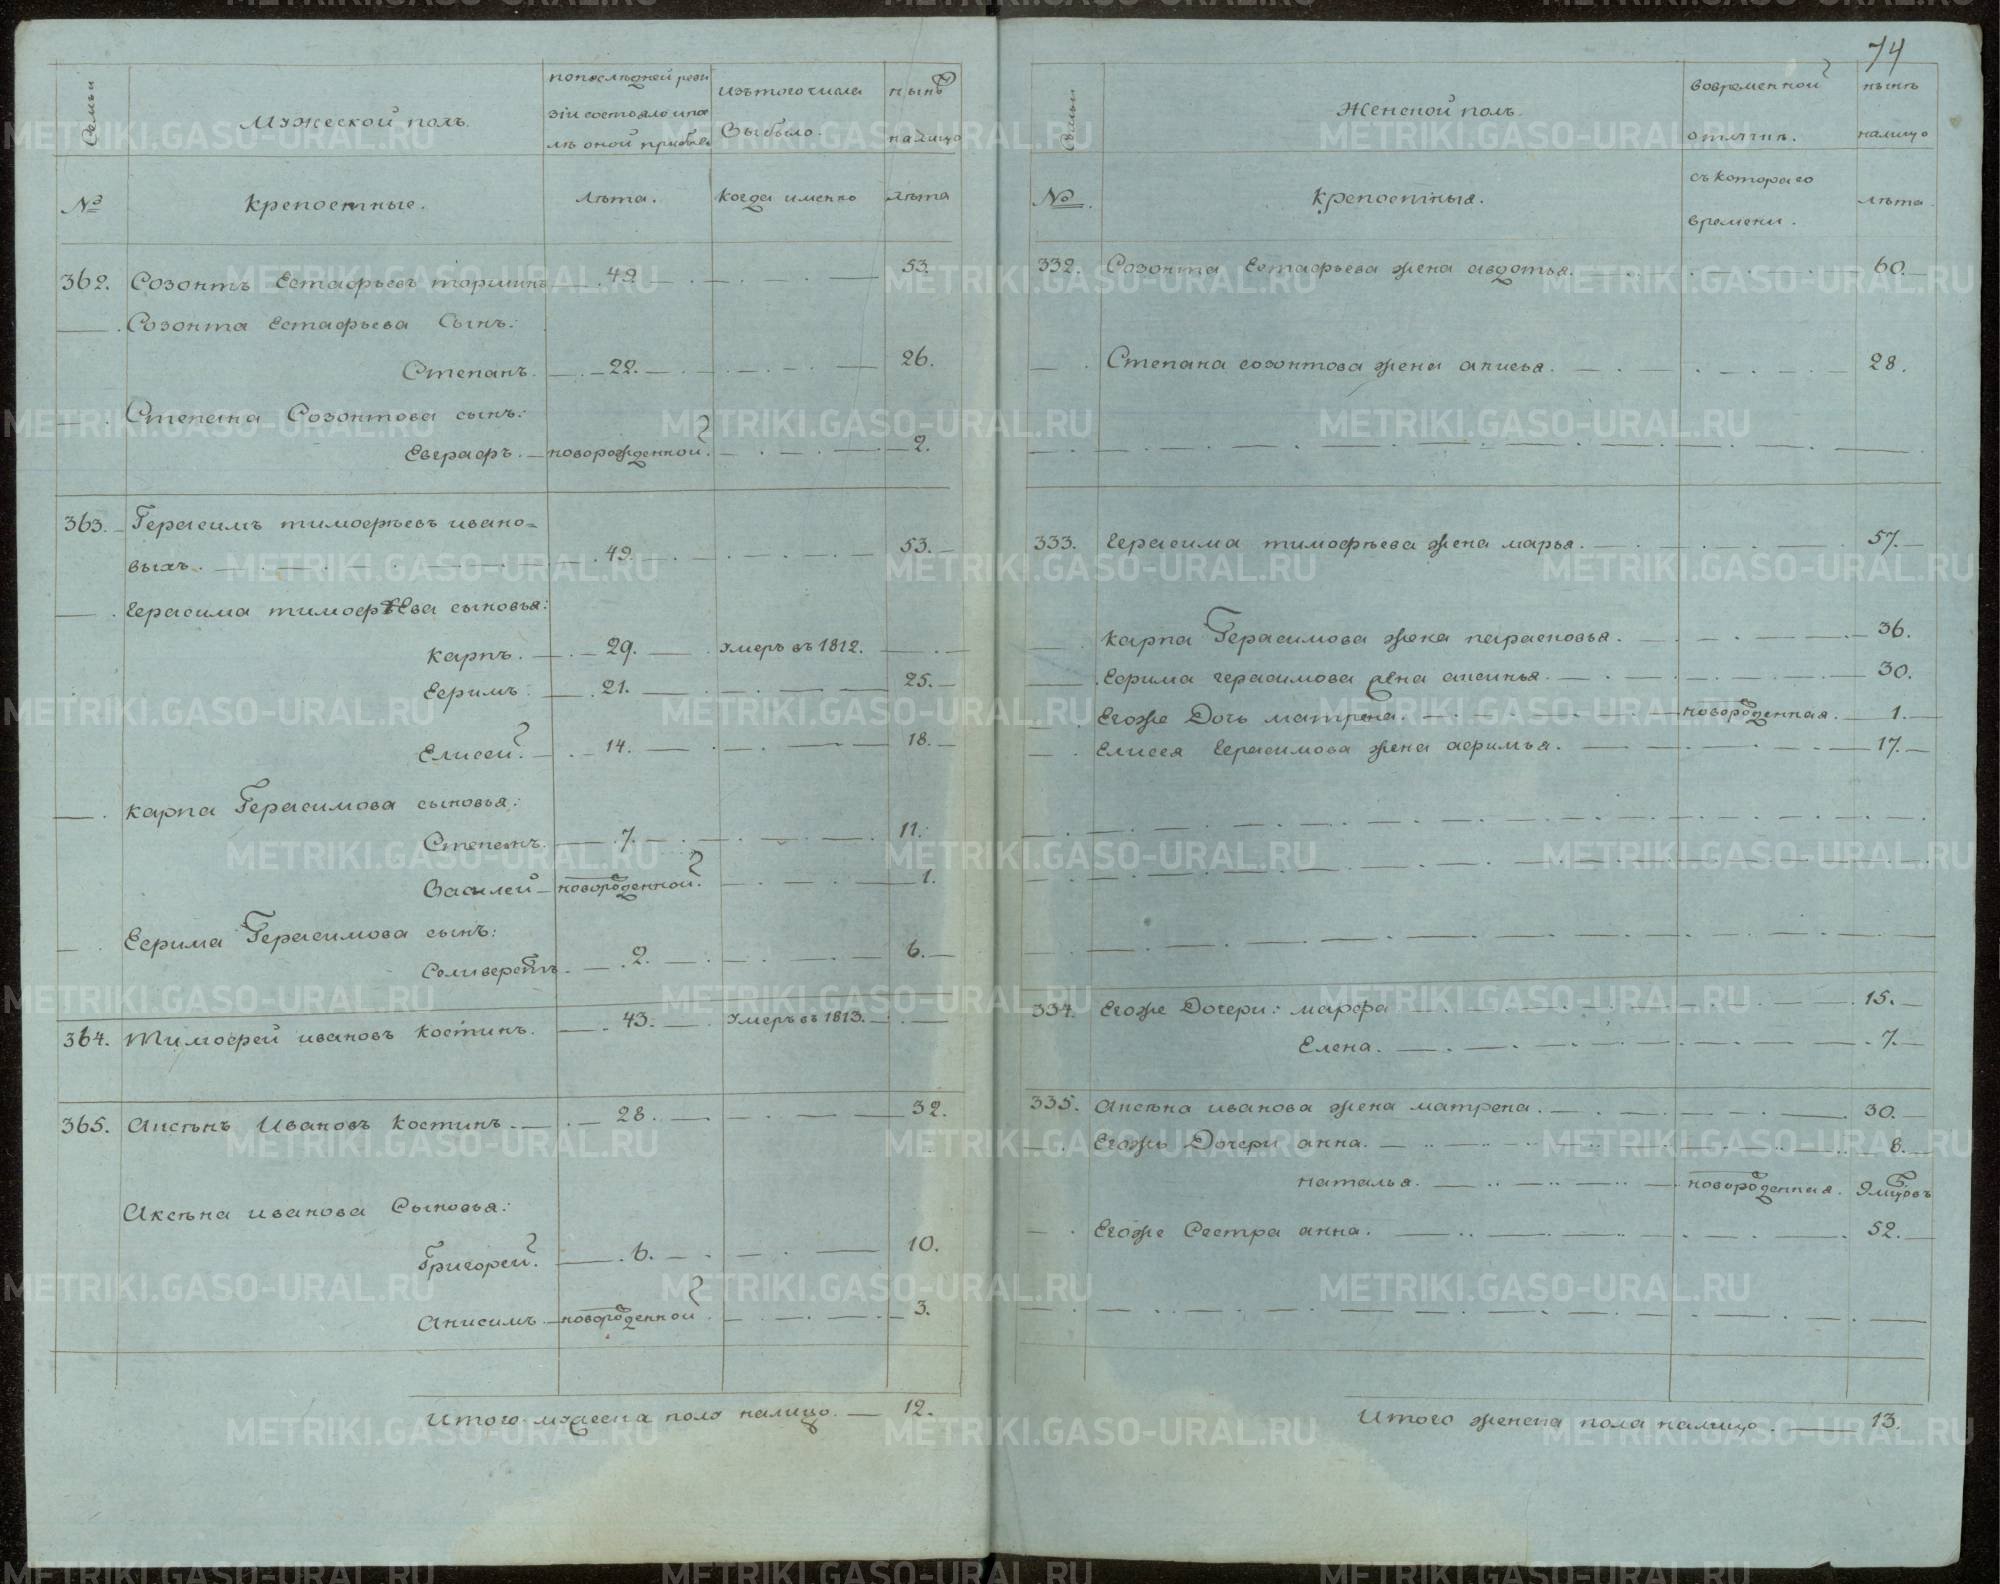 74
Семьи
Мужеской полъ.
попоследней реви
зіи состояло ипо
лѣ оной прибыло
изтого числа
выбыло.
нынѣ
налицо
№
крепостные.
лѣта.
когда именно
лѣта
362. Созонтъ Естафьевъ торминъ 49. 53.
Созонта Естафьева Сынъ:
Степанъ. 22. 26.
Степана Созонтова сынъ:
Евграфъ. новорожденной. 2.
363. Герасимъ тимофѣевъ ивано-
выхъ. 49. 53.
Герасима тимофѣева сыновья:
карпъ. 29. Умеръ въ 1812.
Ефримъ. 21. 25.
Елисей. 14. 18.
карпа Герасимова сыновья:
Степанъ. 7. 11.
Василей новорожденной. 1.
Ефрима Герасимова сынъ:
Селиверстъ. 2. 6.
364. Тимофей ивановъ костинъ. 43. Умеръ въ 1813.
365. Аксѣнъ Ивановъ костинъ. 28. 32.
Аксѣна иванова Сыновья:
Григорей. 6. 10.
Анисимъ новорожденной. 3.
Итого мужеска пола налицо. 12.
Семьи
Женской полъ.
вовременной
отлучкѣ.
нынѣ
налицо
№.
крепостныя.
съ котораго
времени.
лѣта.
332. Созонта Естафьева жена авдотья. 60.
Степана созонтова жена анисья. 28.
333. Герасима тимофѣева жена марья. 57.
карпа Герасимова жена парасковья. 36.
Ефрима герасимова жена аксинья. 30.
Егоже Дочь матрена. новорожденная. 1.
Елисея Герасимова жена афимья. 17.
334. Егоже Дочери: марфа 15.
Елена. 7.
335. Аксѣна иванова жена матрена. 30.
Егожъ Дочери анна. 8.
наталья. новорожденная. 9 мцовъ
Егоже Сестра анна. 52.
Итого женска пола налицо. 13.
METRIKI.GASO-URAL.RU